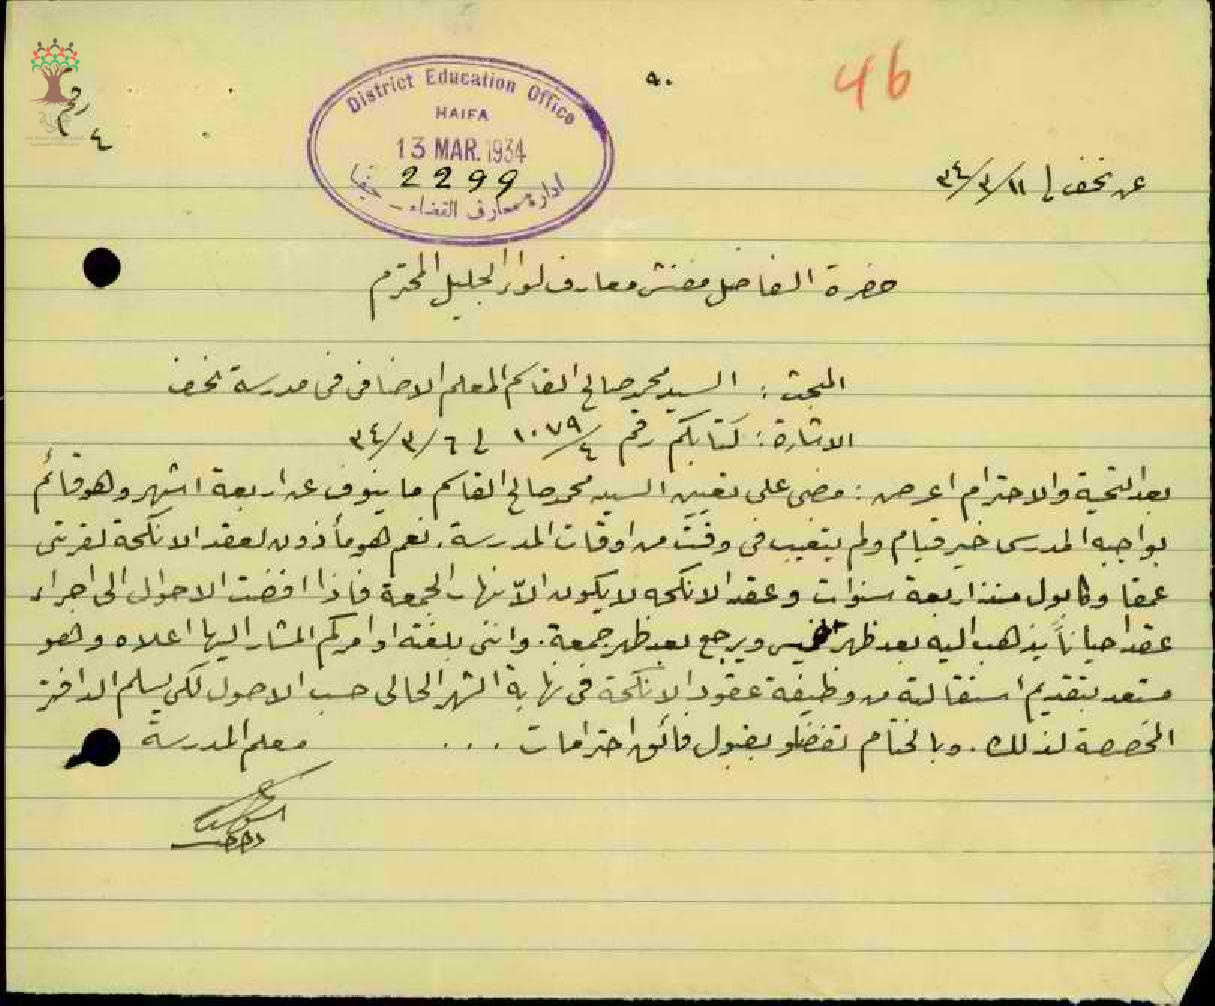 46
٥٠
رقم
٤
District Education Office
HAIFA
13 MAR. 1934
2299
ادارة معارف القضاء - حيفا
عن نحف في ١١/٣/٣٤
حضرة الفاضل مفتش معارف لواء الجليل المحترم
المبحث : السيد محمد صالح القاسم المعلم الاضافي في مدرسة نحف
الاشارة : كتابكم رقم ١٠٧٩/٤ في ٦/٣/٣٤
بعد التحية والاحترام اعرض : مضى على تعيين السيد محمد صالح القاسم ما ينوف عن اربعة اشهر وهو قائم
بواجبه المدرسي خير قيام ولم يتغيب في وقت من اوقات المدرسة . نعم هو مأذون لعقد الانكحة لقريتي
عمقا وكابول منذ اربعة سنوات وعقد الانكحه لا يكون الاّ نهار الجمعة فاذا افضت الاحوال الى اجراء
عقد احياناً يذهب اليه بعد ظهر الخميس ويرجع بعد ظهر جمعة . وانني بلغته اوامركم المشار اليها اعلاه وهو
مستعد بتقديم استقالته من وظيفة عقود الانكحة في نهاية الشهر الحالي حسب الاصول لكي يسلم الدافتر
المخصصة لذلك . وبالختام تفضلو بقبول فائق احترامات . . .
معلم المدرسة